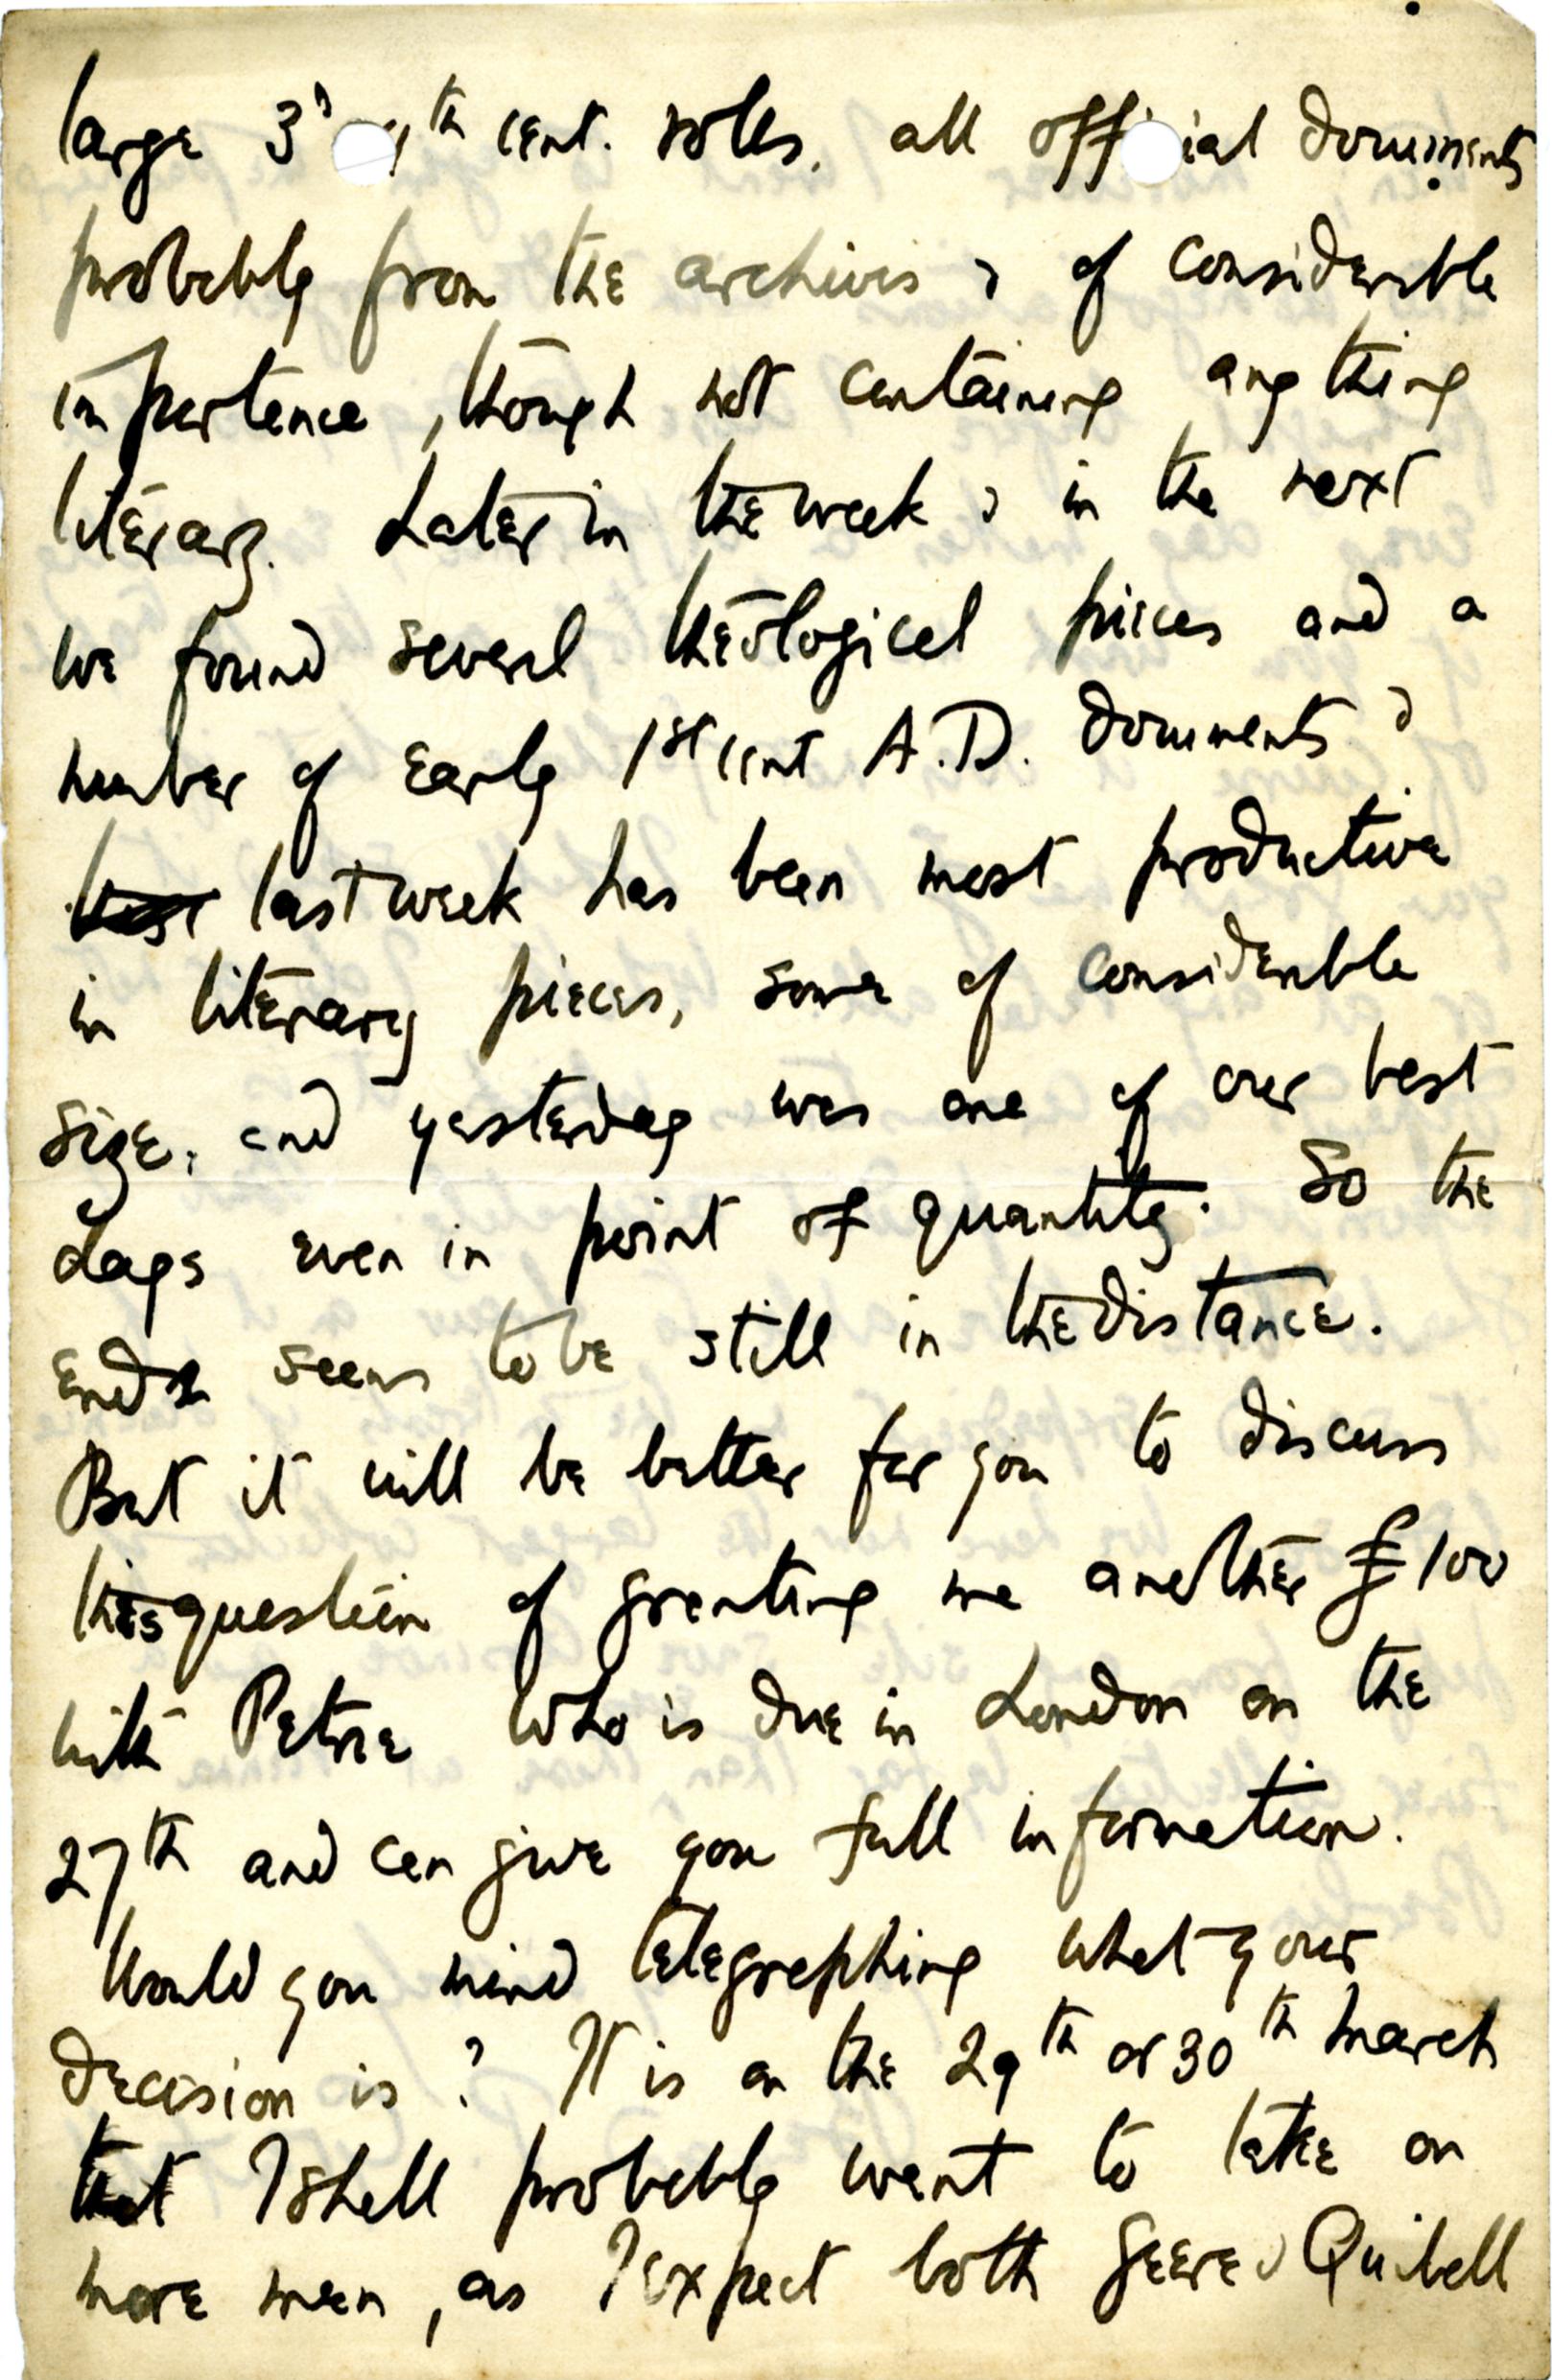 large 3rd 4th cent. rolls, all official documents
probably from the archives & of considerable
importance, though not containing anything
literary. Later in the week & in the next
we found several theological pieces and a
number of early 1st cent A.D. documents &
last week has been most productive
in literary pieces, some of considerable
size, and yesterday was one of our best
days even in point of quantity. So the
end seems to be still in the distance.
But it will be better for you to discuss
this question of granting me another £100
with Petrie who is due in London on the
27th and can give you full information.
Would you mind telegraphing what your
decision is? It is on the 29th or 30th March
that I shall probably want to take on
more men, as I expect both Geere & Quibell